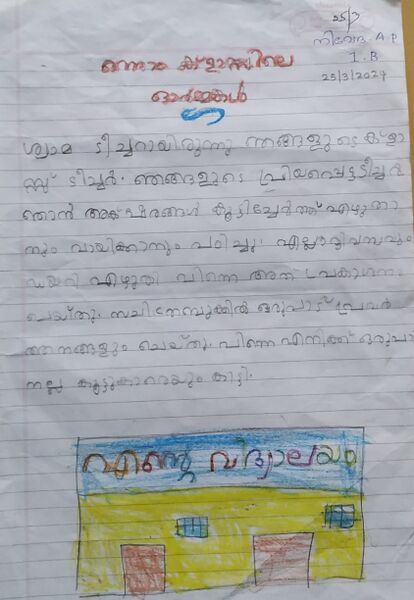 25/3
നിവേദ. A P
1. B
25/3/2024
ഒന്നാം ക്ളാസ്സിലെ
ഓർമ്മകൾ
ശ്യാമ ടീച്ചറായിരുന്നു ഞങ്ങളുടെ ക്ളാ
സ്സ് ടീച്ചർ. ഞങ്ങളുടെ പ്രിയപ്പെട്ട ടീച്ചർ
ഞാൻ അക്ഷരങ്ങൾ കൂട്ടിച്ചേർത്ത് എഴുതാ
നും വായിക്കാനും പഠിച്ചു. എല്ലാ ദിവസവും
ഡയറി എഴുതി പിന്നെ അത് പ്രകാശനം
ചെയ്തു. സചിത്രബുക്കിൽ ഒരുപാട് പ്രവർ
ത്തനങ്ങളും ചെയ്തു. പിന്നെ എനിക്ക് ഒരുപാ
നല്ല കൂട്ടുകാരെയും കിട്ടി.
എന്റെ വിദ്യാലയം